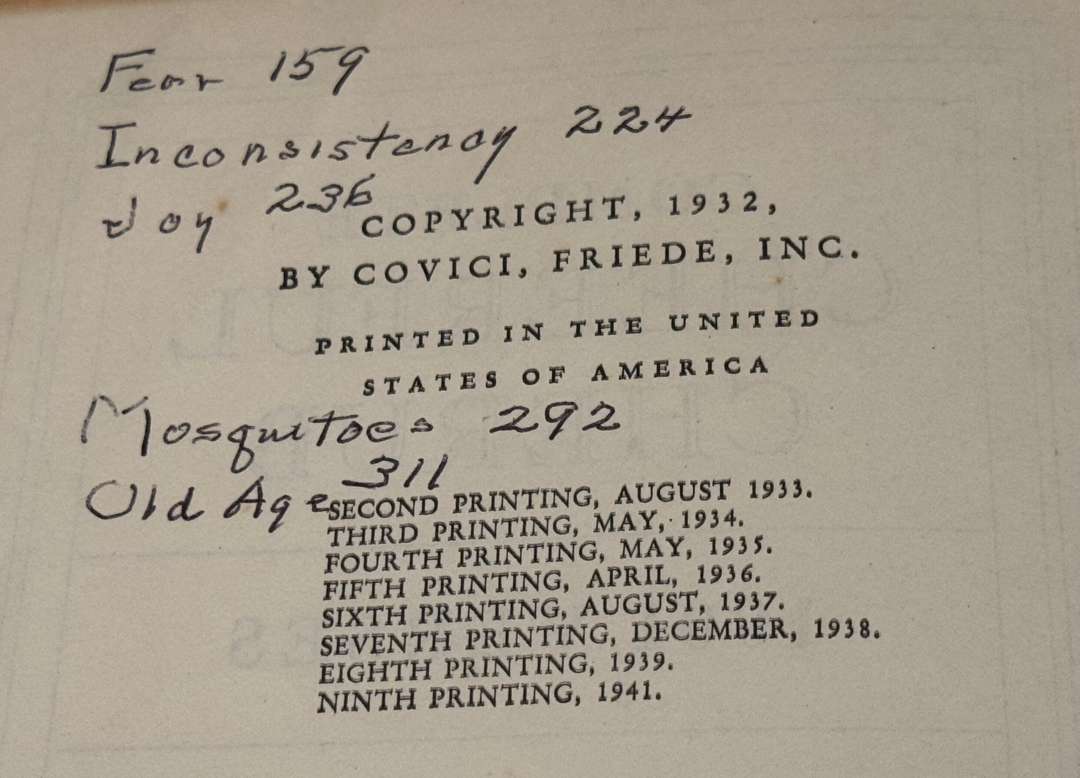 Fear 159
Inconsistency 224
Joy 236
COPYRIGHT, 1932,
BY COVICI, FRIEDE, INC.
PRINTED IN THE UNITED
STATES OF AMERICA
Mosquitoes 292
Old Age 311
SECOND PRINTING, AUGUST 1933.
THIRD PRINTING, MAY, 1934.
FOURTH PRINTING, MAY, 1935.
FIFTH PRINTING, APRIL, 1936.
SIXTH PRINTING, AUGUST, 1937.
SEVENTH PRINTING, DECEMBER, 1938.
EIGHTH PRINTING, 1939.
NINTH PRINTING, 1941.